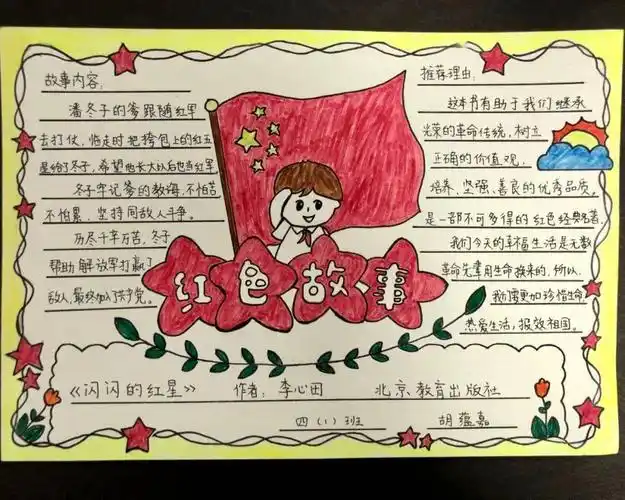 故事内容:
潘冬子的爹跟随红军
去打仗,临走时把挎包上的红五
星给了冬子,希望他长大以后也当红军。
冬子牢记爹的教诲,不怕苦
不怕累,坚持同敌人斗争。
历尽千辛万苦,冬子
帮助解放军打赢了
敌人,最终加入了共产党。
推荐理由:
这本书有助于我们继承
光荣的革命传统,树立
正确的价值观,
培养、坚强、善良的优秀品质。
是一部不可多得的红色经典名著。
我们今天的幸福生活是无数
革命先辈用生命换来的,所以,
我们要更加珍惜生命,
热爱生活,报效祖国。
红色故事
《闪闪的红星》 作者:李心田 北京教育出版社
四(1)班 胡蕴嘉